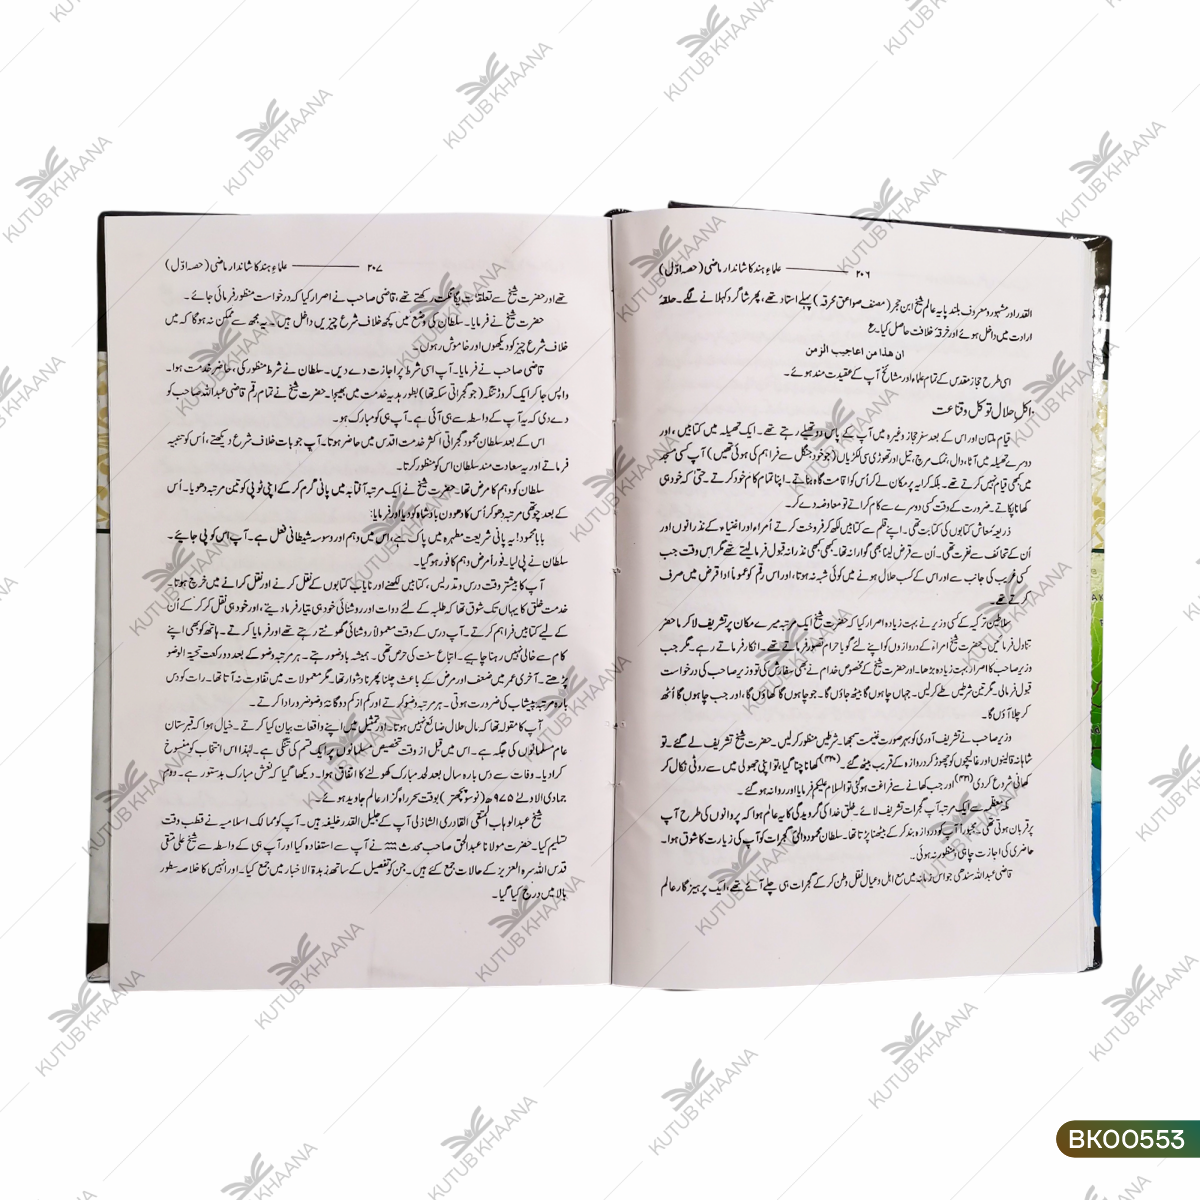 ۲۰۶ علماءِ ہند کا شاندار ماضی (حصہ اوّل)
القدر اور مشہور و معروف بلند پایہ عالم شیخ ابن حجر (مصنف صواعق محرقہ) پہلے استاد تھے، پھر شاگرد کہلانے لگے۔ حلقۂ
ارادت میں داخل ہوئے اور خرقۂ خلافت حاصل کیا۔ ع
ان هذا من اعاجيب الزمن
اسی طرح حجاز مقدس کے تمام علماء اور مشائخ آپ کے عقیدت مند ہوئے۔
اکلِ حلال توکل و قناعت
قیام ملتان اور اس کے بعد سفر حجاز وغیرہ میں آپ کے پاس دو تھیلے رہتے تھے۔ ایک تھیلہ میں کتابیں، اور
دوسرے تھیلہ میں آٹا، دال، نمک مرچ، تیل اور تھوڑی سی لکڑیاں (جو خود جنگل سے فراہم کی ہوتی تھیں) آپ کسی مسجد
میں کبھی قیام نہیں کرتے تھے۔ بلکہ کرایہ پر مکان لے کر اُس کو اقامت گاہ بناتے۔ اپنا تمام کام خود کرتے۔ حتیٰ کہ خود ہی
کھانا پکاتے۔ ضرورت کے وقت کسی دوسرے سے کام کراتے تو معاوضہ دے کر۔
ذریعہ معاش کتابوں کی کتابت تھی۔ اپنے قلم سے کتابیں لکھ کر فروخت کرتے اُمراء اور اغنیاء کے نذرانوں اور
اُن کے تحائف سے نفرت تھی۔ اُن سے قرض لینا بھی گوارا نہ تھا۔ کبھی کبھی نذرانہ قبول فرما لیتے تھے مگر اس وقت جب
کسی غریب کی جانب سے اور اس کے کسب حلال ہونے میں کوئی شبہ نہ ہوتا، اور اس رقم کو عموماً ادا قرض میں صرف
کرتے تھے۔
سلاطین ترکیہ کے کسی وزیر نے بہت زیادہ اصرار کیا کہ حضرت شیخ ایک مرتبہ میرے مکان پر تشریف لا کر ماحضر
تناول فرمائیں۔ حضرت شیخ امراء کے دروازوں کو اپنے لئے گویا حرام تصور فرماتے تھے۔ انکار فرماتے رہے۔ مگر جب
وزیر صاحب کا اصرار بہت زیادہ بڑھا۔ اور حضرت شیخ کے مخصوص خدام نے بھی سفارش کی تو وزیر صاحب کی درخواست
قبول فرمالی۔ مگر تین شرطیں طے کر لیں۔ جہاں چاہوں گا بیٹھ جاؤں گا۔ جو چاہوں گا کھاؤں گا، اور جب چاہوں گا اُٹھ
کر چلا آؤں گا۔
وزیر صاحب نے تشریف آوری کو بہر صورت غنیمت سمجھا۔ شرطیں منظور کر لیں۔ حضرت شیخ تشریف لے گئے۔ تو
شاہانہ قالینوں اور غالیچوں کو چھوڑ کر دروازہ کے قریب بیٹھ گئے۔ کھانا چنا گیا، تو اپنی جھولی میں سے روٹی نکال کر
کھانی شروع کر دی اور جب کھانے سے فراغت ہو گئی تو السلام علیکم فرمایا اور روانہ ہو گئے۔
مکہ معظمہ سے ایک مرتبہ آپ گجرات تشریف لائے۔ خلق خدا کی گرویدگی کا یہ عالم ہوا کہ پروانوں کی طرح آپ
پر قربان ہوتی تھی۔ مجبوراً آپ کو دروازہ بند کر کے بیٹھنا پڑتا تھا۔ سلطان محمود والیٔ گجرات کو آپ کی زیارت کا شوق ہوا۔
حاضری کی اجازت چاہی منظور نہ ہوئی۔
قاضی عبداللہ سندھی جو اس زمانہ میں مع اہل و عیال نقل وطن کر کے گجرات ہی چلے آئے تھے، ایک پرہیزگار عالم
۲۰۷ علماءِ ہند کا شاندار ماضی (حصہ اوّل)
تھے اور حضرت شیخ سے تعلقات یگانگت رکھتے تھے، قاضی صاحب نے اصرار کیا کہ درخواست منظور فرمائی جائے۔
حضرت شیخ نے فرمایا۔ سلطان کی وضع میں کچھ خلاف شرع چیزیں داخل ہیں۔ یہ مجھ سے ممکن نہ ہوگا کہ میں
خلاف شرع چیز کو دیکھوں اور خاموش رہوں۔
قاضی صاحب نے فرمایا۔ آپ اسی شرط پر اجازت دے دیں۔ سلطان نے شرط منظور کی، حاضر خدمت ہوا۔
واپس جا کر ایک کروڑ تنگہ (جو گجراتی سکہ تھا) بطور ہدیہ خدمت میں بھیجا۔ حضرت شیخ نے تمام رقم قاضی عبداللہ صاحب کو
دے دی کہ یہ آپ کے واسطہ سے ہی آئی ہے۔ آپ ہی کو مبارک ہو۔
اس کے بعد سلطان محمود گجراتی اکثر خدمت اقدس میں حاضر ہوتا۔ آپ جو بات خلاف شرع دیکھتے، اُس کو تنبیہ
فرماتے اور یہ سعادت مند سلطان اس کو منظور کرتا۔
سلطان کو وہم کا مرض تھا۔ حضرت شیخ نے ایک مرتبہ آفتابہ میں پانی گرم کر کے اپنی ٹوپی کو تین مرتبہ دھویا۔ اُس
کے بعد چوتھی مرتبہ دھو کر اُس کا دھوون بادشاہ کو دیا اور فرمایا:
بابا محمود! یہ پانی شریعت مطہرہ میں پاک ہے، اس میں وہم اور وسوسہ شیطانی فعل ہے۔ آپ اس کو پی جائیے۔
سلطان نے پی لیا۔ فوراً مرض وہم کافور ہو گیا۔
آپ کا بیشتر وقت درس و تدریس، کتابیں لکھنے اور نایاب کتابوں کے نقل کرنے اور نقل کرانے میں خرچ ہوتا۔
خدمت خلق کا یہاں تک شوق تھا کہ طلبہ کے لئے دوات اور روشنائی خود ہی تیار فرما دیتے، اور خود ہی نقل کر کر کے اُن
کے لیے کتابیں فراہم کرتے۔ آپ درس کے وقت معمولاً روشنائی گھوٹتے رہتے تھے اور فرمایا کرتے۔ ہاتھ کو بھی اپنے
کام سے خالی نہیں رہنا چاہیے۔ اتباع سنت کی حرص تھی۔ ہمیشہ باوضو رہتے۔ ہر مرتبہ وضو کے بعد دو رکعت تحیۃ الوضو
پڑھتے۔ آخری عمر میں ضعف اور مرض کے باعث چلنا پھرنا دشوار تھا۔ مگر معمولات میں تفاوت نہ آتا تھا۔ رات کو دس
بارہ مرتبہ پیشاب کی ضرورت ہوتی۔ ہر مرتبہ وضو کرتے اور کم از کم دوگانۂ وضو ضرور ادا کرتے۔
آپ کا مقولہ تھا کہ مال حلال ضائع نہیں ہوتا۔ اور تمثیل میں اپنے واقعات بیان کیا کرتے۔ خیال ہوا کہ قبرستان
عام مسلمانوں کی جگہ ہے۔ اس میں قبل از وقت تخصیص مسلمانوں پر ایک قسم کی تنگی ہے۔ لہٰذا اس انتخاب کو منسوخ
کرا دیا۔ وفات سے دس بارہ سال بعد لحد مبارک کھولنے کا اتفاق ہوا۔ دیکھا گیا کہ نعش مبارک بدستور ہے۔ دوم
جمادی الاولے ۹۷۵ھ (نو سو پچھتر) بوقت سحر راہ گزار عالم جاوید ہوئے۔
شیخ عبدالوہاب المتقی القادری الشاذلی آپ کے جلیل القدر خلیفہ ہیں۔ آپ کو ممالک اسلامیہ نے قطب وقت
تسلیم کیا۔ حضرت مولانا عبدالحق صاحب محدث نے آپ سے استفادہ کیا اور آپ ہی کے واسطہ سے شیخ علی متقی
قدس اللہ سرہ العزیز کے حالات جمع کئے ہیں۔ جن کو تفصیل کے ساتھ زبدۃ الاخبار میں جمع کیا۔ اور انہیں کا خلاصہ سطور
بالا میں درج کیا گیا۔
BK00553
KUTUB KHAANA